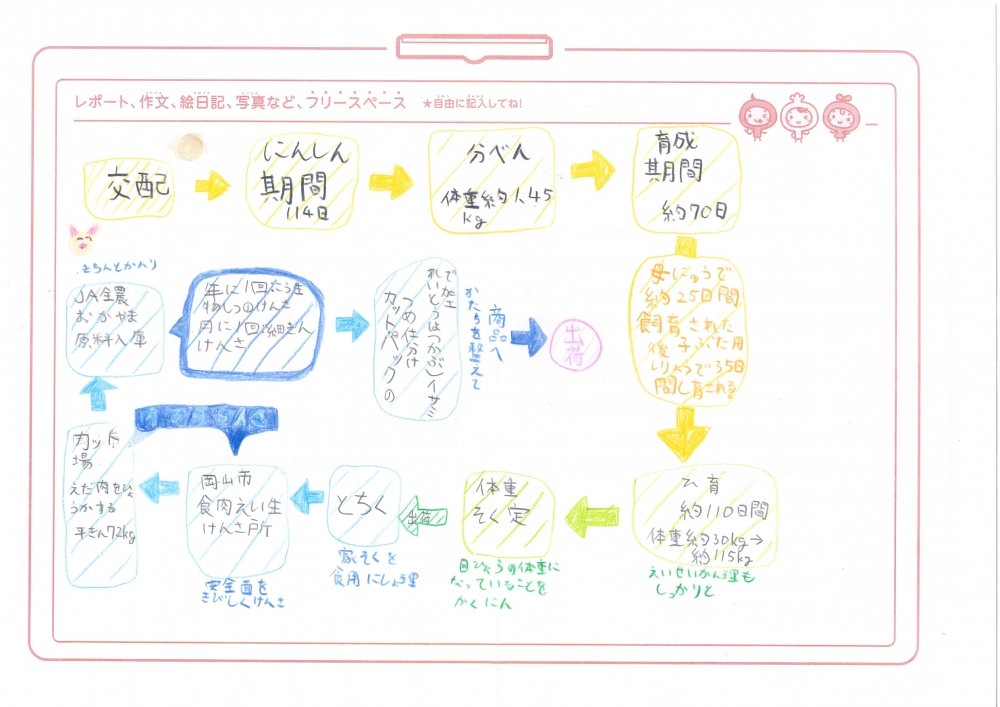 レポート、作文、絵日記、写真など、フリースペース ★自由に記入してね!
交配
にんしん
期間
114日
分べん
体重約1.45
kg
育成
期間
約70日
母にゅうで
約25日間
飼育された
後子ぶた用
しりょうで35日
間し育される。
ひ育
約110日間
体重約30kg→
約115kg
えいせいかん理も
しっかりと
体重
そく定
目ひょうの体重に
なっていることを
かくにん
出荷
とちく
家ちくを
食用にしょ理
岡山市
食肉えい生
けんさ所
安全面を
きびしくけんさ
カット
場
えだ肉をひょ
うかする
平きん72kg
きちんとかんり
JA全農
おかやま
原料入庫
年に1回こう生
物しつのけんさ
月に1回細きん
けんさ
で加工
れいとうはつかぶ)イサミ
つめ仕分け
カットパックの
商品へ
かたちを整えて
出荷